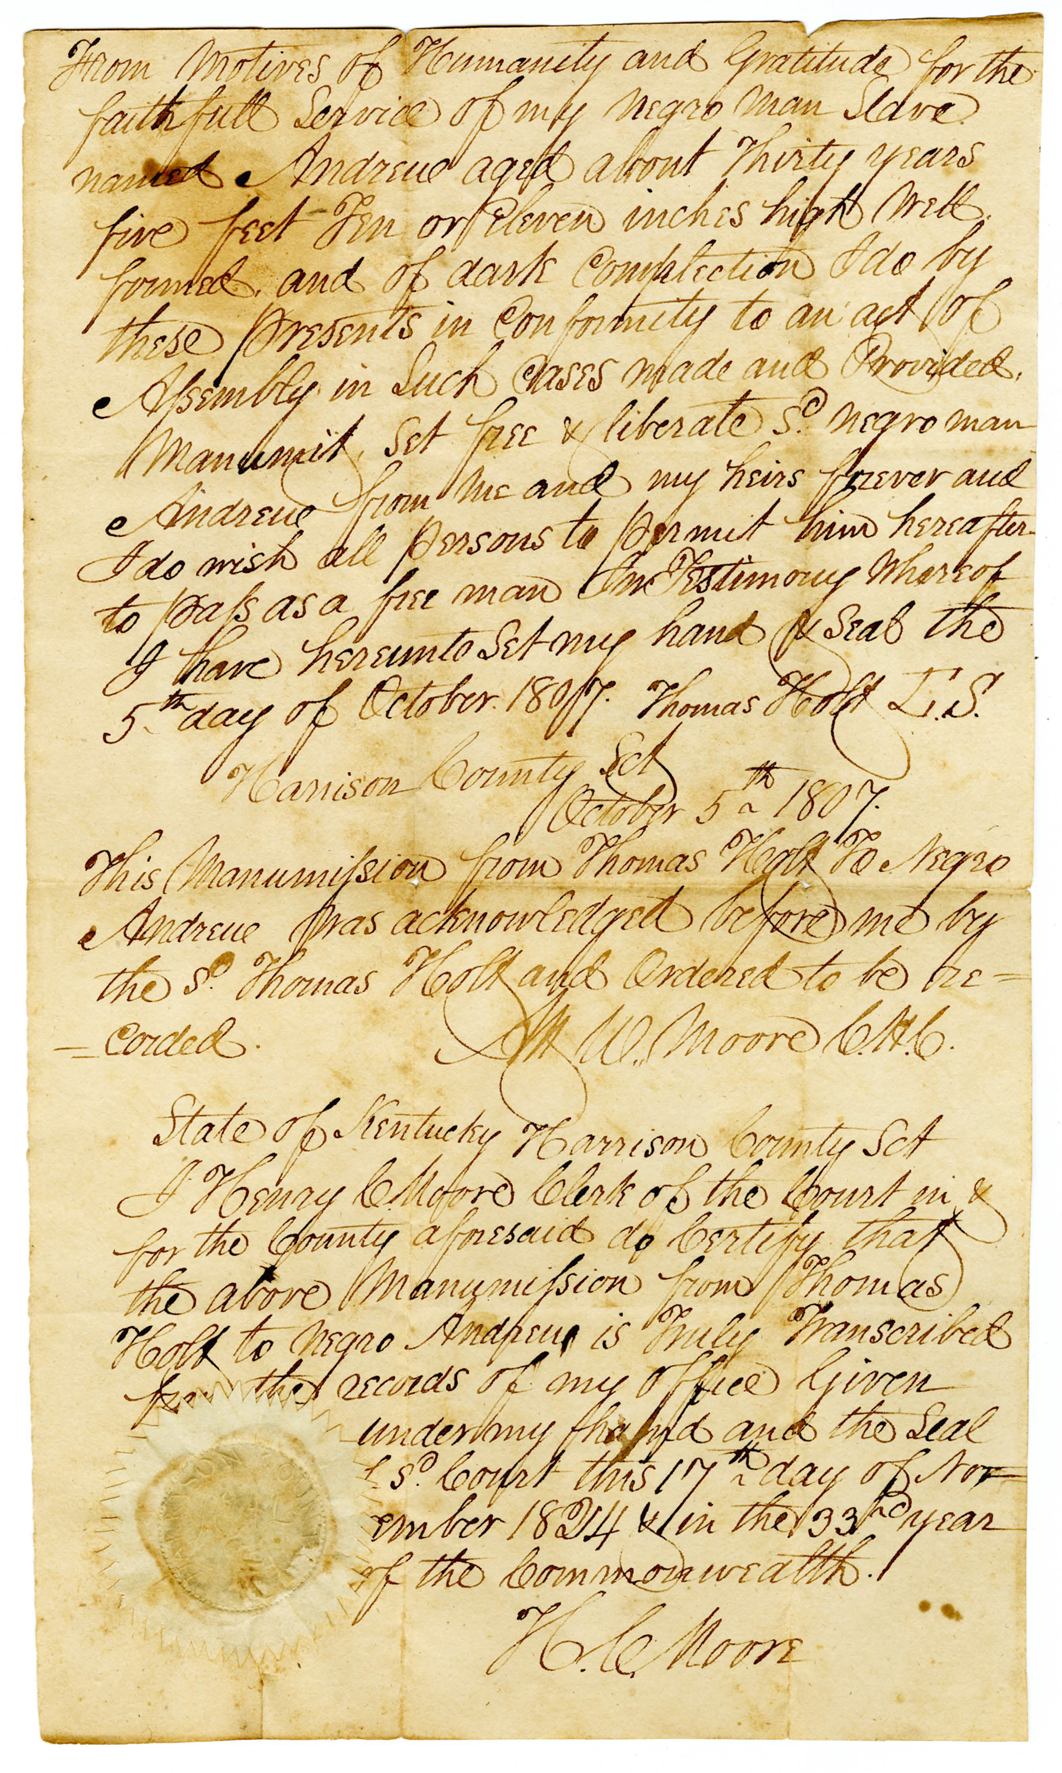 From Motives of Humanity and Gratitude for the
faithfull Service of my negro man Slave
named Andrew aged about Thirty years
five feet Ten or Eleven inches high Well
formed and of dark Complection I do by
these presents in Conformity to an act of
Assembly in Such Cases made and Provided,
Manumit, Set free & liberate Sd. negro man
Andrew from Me and my heirs forever and
I do wish all persons to permit him hereafter
to pass as a free man In Testimony Whereof
I have hereunto Set my hand & Seal the
5th day of October 1807. Thomas Holt L.S.
Harrison County Sct
October 5th 1807.
This Manumission from Thomas Holt To Negro
Andrew was acknowledged before me by
the Sd. Thomas Holt and Ordered to be re=
=corded.
Att W. Moore C.H.C.
State of Kentucky Harrison County Sct
I Henry C. Moore Clerk of the Court in &
for the County aforesaid do Certify that
the above Manumission from Thomas
Holt to negro Andrew is Truly Transcribed
from the records of my office Given
under my hand and the Seal
of Sd. Court this 17th day of Nov=
ember 1824 & in the 33rd year
of the Commonwealth.
H. C. Moore